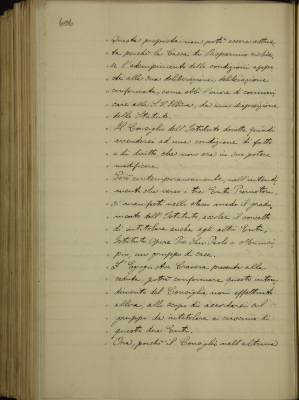 606
Questa proposta non potè essere attua-
ta perchè la Cassa di Risparmio richie-
se l'adempimento delle condizioni appo-
ste alla sua deliberazione, deliberazione
confermata, come ebbi l'onore di comuni-
care alla S.V. Ill.ma, da una disposizione
dello Statuto.
Il Consiglio dell'Istituto dovette quindi
arrendersi ad una condizione di fatto
e di diritto che non era in suo potere
modificare.
Però contemporaneamente, nell'intendi-
mento che verso i tre Enti
si manifesti nello stesso modo il gradi-
mento dell'Istituto, accolse il concetto
di intitolare anche agli altri Enti,
Istituto Opere Pie San Paolo e Munici-
pio, un gruppo di case.
Il Signor Avv. presente alla
seduta, potrà confermare questo inten-
dimento del Consiglio, non effettuato
allora, allo scopo di accordarsi sul
gruppo da intitolare a ciascuno di
questi due Enti.
Ora, poichè il Consiglio nell'ultima